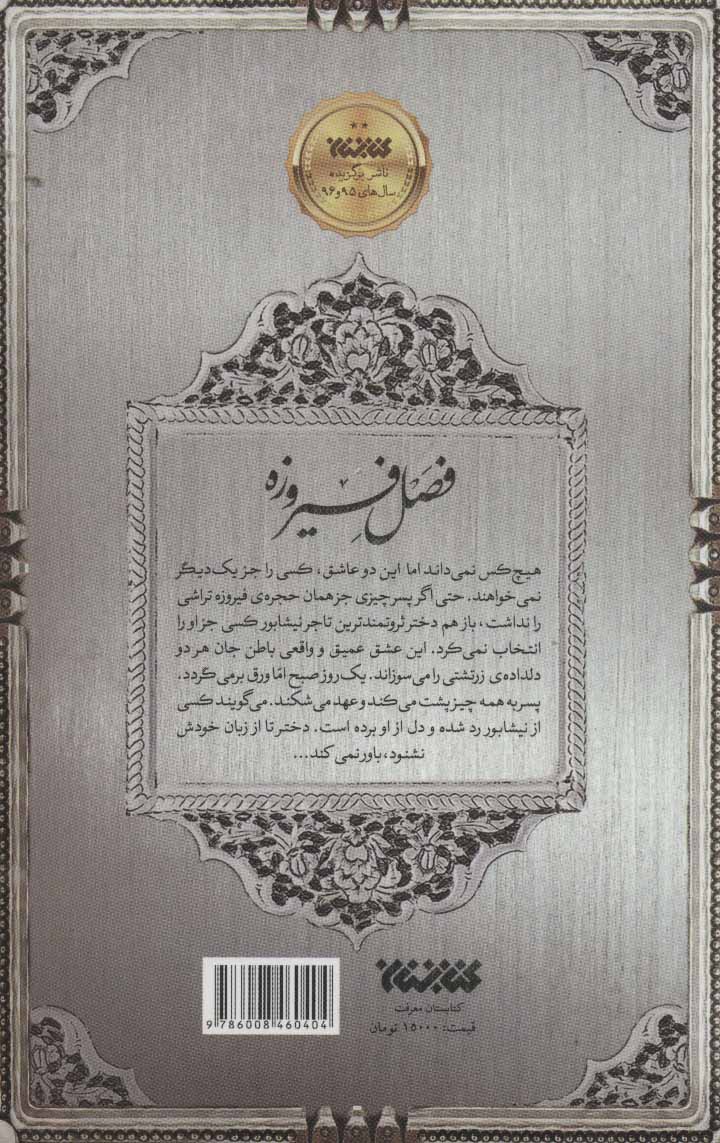 کتابستان
ناشر برگزیده
سال‌های ۹۵ و ۹۶
فصل فیروزه
هیچ‌کس نمی‌داند اما این دو عاشق، کسی را جز یک‌دیگر
نمی‌خواهند. حتی اگر پسر چیزی جز همان حجره‌ی فیروزه تراشی
را نداشت، باز هم دختر ثروتمندترین تاجر نیشابور کسی جز او را
انتخاب نمی‌کرد. این عشق عمیق و واقعی باطن جان هر دو
دلداده‌ی زرتشتی را می‌سوزاند. یک روز صبح امّا ورق برمی‌گردد.
پسر به همه چیز پشت می‌کند و عهد می‌شکند. می‌گویند کسی
از نیشابور رد شده و دل از او برده است. دختر تا از زبان خودش
نشنود، باور نمی‌کند...
کتابستان
کتابستان معرفت
قیمت: ۱۵۰۰۰ تومان
9 786008 460404